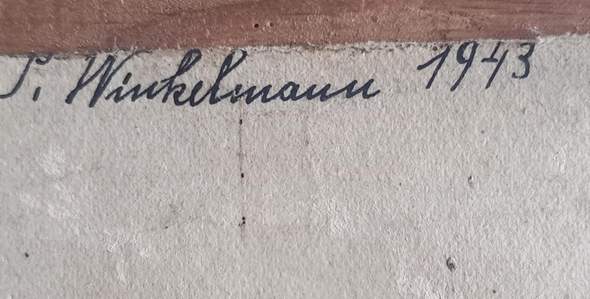 S. Winkelmann 1943